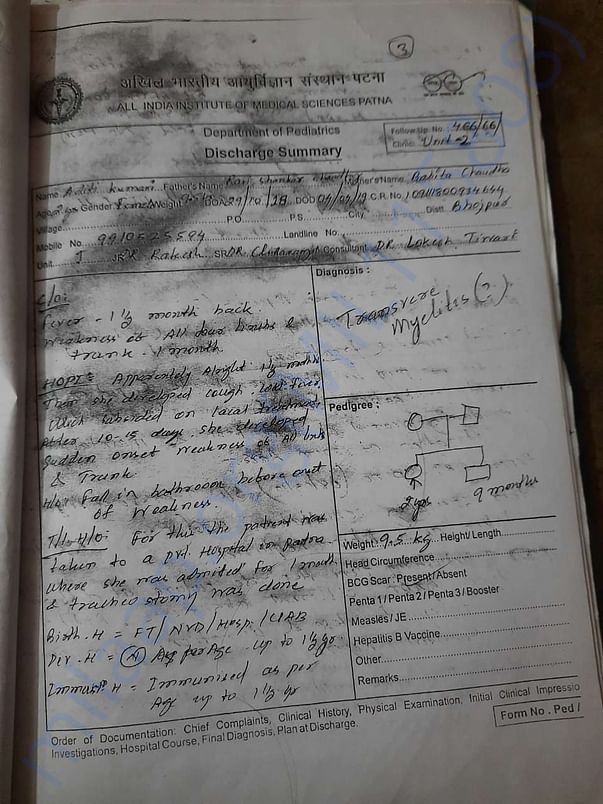 3
अखिल भारतीय आयुर्विज्ञान संस्थान पटना
ALL INDIA INSTITUTE OF MEDICAL SCIENCES PATNA
Department of Pediatrics
Discharge Summary
Follow Up No. 466/66/
Clinic Unit-2
Name Aditi Kumari Father's Name Shankar Mother's Name Babita
Age Gender Female Weight DOA 29/10/18 DOD C.R. No.
Village P.O. P.S. City Distt. Bhojpur
Mobile No. Landline No.
Unit I JR DR Rakesh SR DR Consultant DR. Lokesh Tiwari
C/O:
Fever - 1½ month back
Weakness of All four limbs &
trunk - 1 month
HOPI: Apparently Alright 1½ months
Then she developed cough
Which subsided on local treatment
After 10-15 days she developed
Sudden onset weakness of All limbs
& Trunk
H/o Fall in bathroom before onset
of Weakness.
T/t H/o: For this the patient was
taken to a pvt. Hospital in patna
where she was admitted for 1 month
& tracheostomy was done
Birth H = FT/NVD/Hosp./CIAB
Dev. H = N As per Age up to 1½ yr
Immun H = Immunised as per
Age up to 1½ yr
Diagnosis :
Transverse
Myelitis (?)
Pedigree :
2 yrs
9 months
Weight: 9.5 kg Height/ Length
Head Circumference
BCG Scar : Present/Absent
Penta 1 / Penta 2 / Penta 3 / Booster
Measles / JE
Hepatitis B Vaccine
Other
Remarks
Order of Documentation: Chief Complaints, Clinical History, Physical Examination, Initial Clinical Impressio
Investigations, Hospital Course, Final Diagnosis, Plan at Discharge.
Form No . Ped /